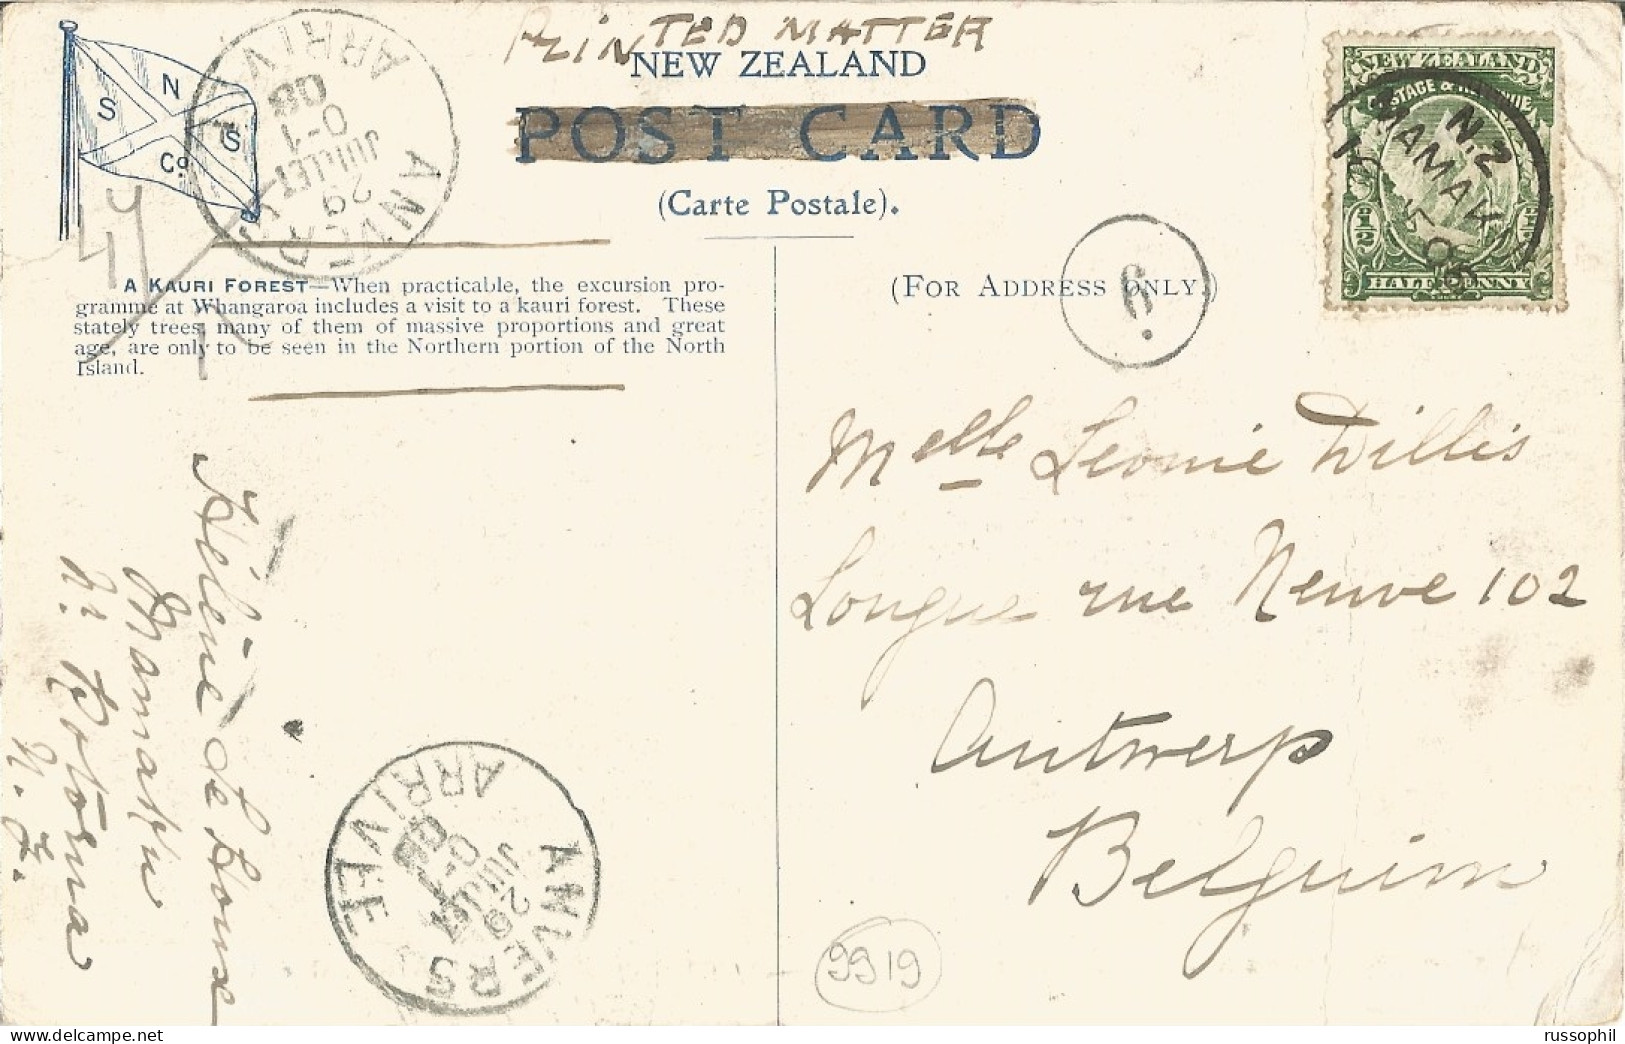 PRINTED MATTER
NEW ZEALAND
POST CARD
(Carte Postale).
N
S S
Co.
ANVERS
ARRIVEE
29
JUILLET
0-1
08
A KAURI FOREST—When practicable, the excursion pro-
gramme at Whangaroa includes a visit to a kauri forest. These
stately trees, many of them of massive proportions and great
age, are only to be seen in the Northern portion of the North
Island.
(FOR ADDRESS ONLY.)
6.
NEW ZEALAND
POSTAGE & REVENUE
1/2
HALF PENNY
N.Z
MAMAKU
Melle Leonie Willes
Longue rue Neuve 102
Antwerp
Belguim
Hélène de
Mamaku
N.Z.
ANVERS
ARRIVEE
29
JUILLET
08
9919
www.delcampe.net
russophil